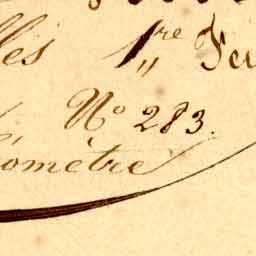 lles 1re Feu
No 283.
omètre